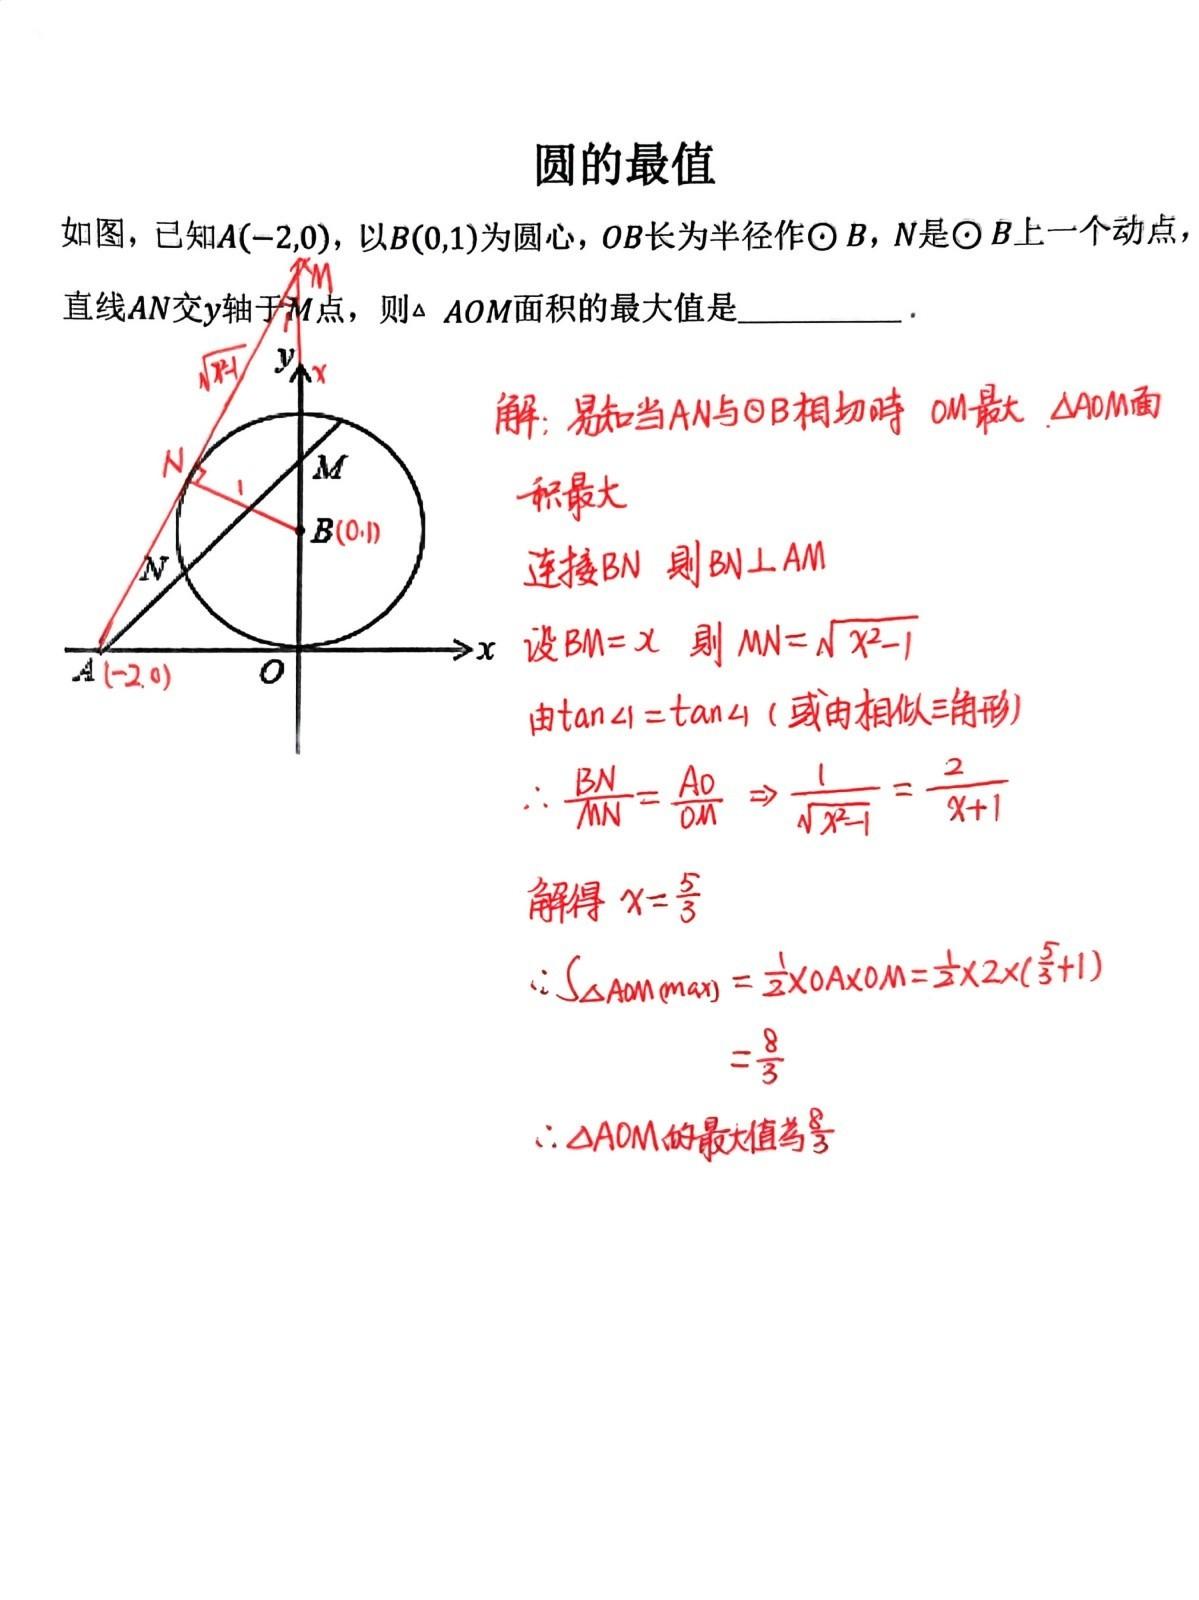 圆的最值
如图，已知A(−2,0)，以B(0,1)为圆心，OB长为半径作⊙B，N是⊙B上一个动点，
M
直线AN交y轴于M点，则△AOM面积的最大值是__________.
√x²-1
y
x
N
1
M
B(0,1)
N
A(-2,0)
O
x
解：易知当AN与⊙B相切时 OM最大 △AOM面
积最大
连接BN 则BN⊥AM
设BM=x 则 MN=√x²-1
由tan∠1=tan∠1（或由相似三角形）
∴ BN/MN = AO/OM ⇒ 1/√x²-1 = 2/x+1
解得 x=5/3
∴S△AOM(max) = 1/2×OA×OM=1/2×2×(5/3+1)
=8/3
∴△AOM的最大值为8/3